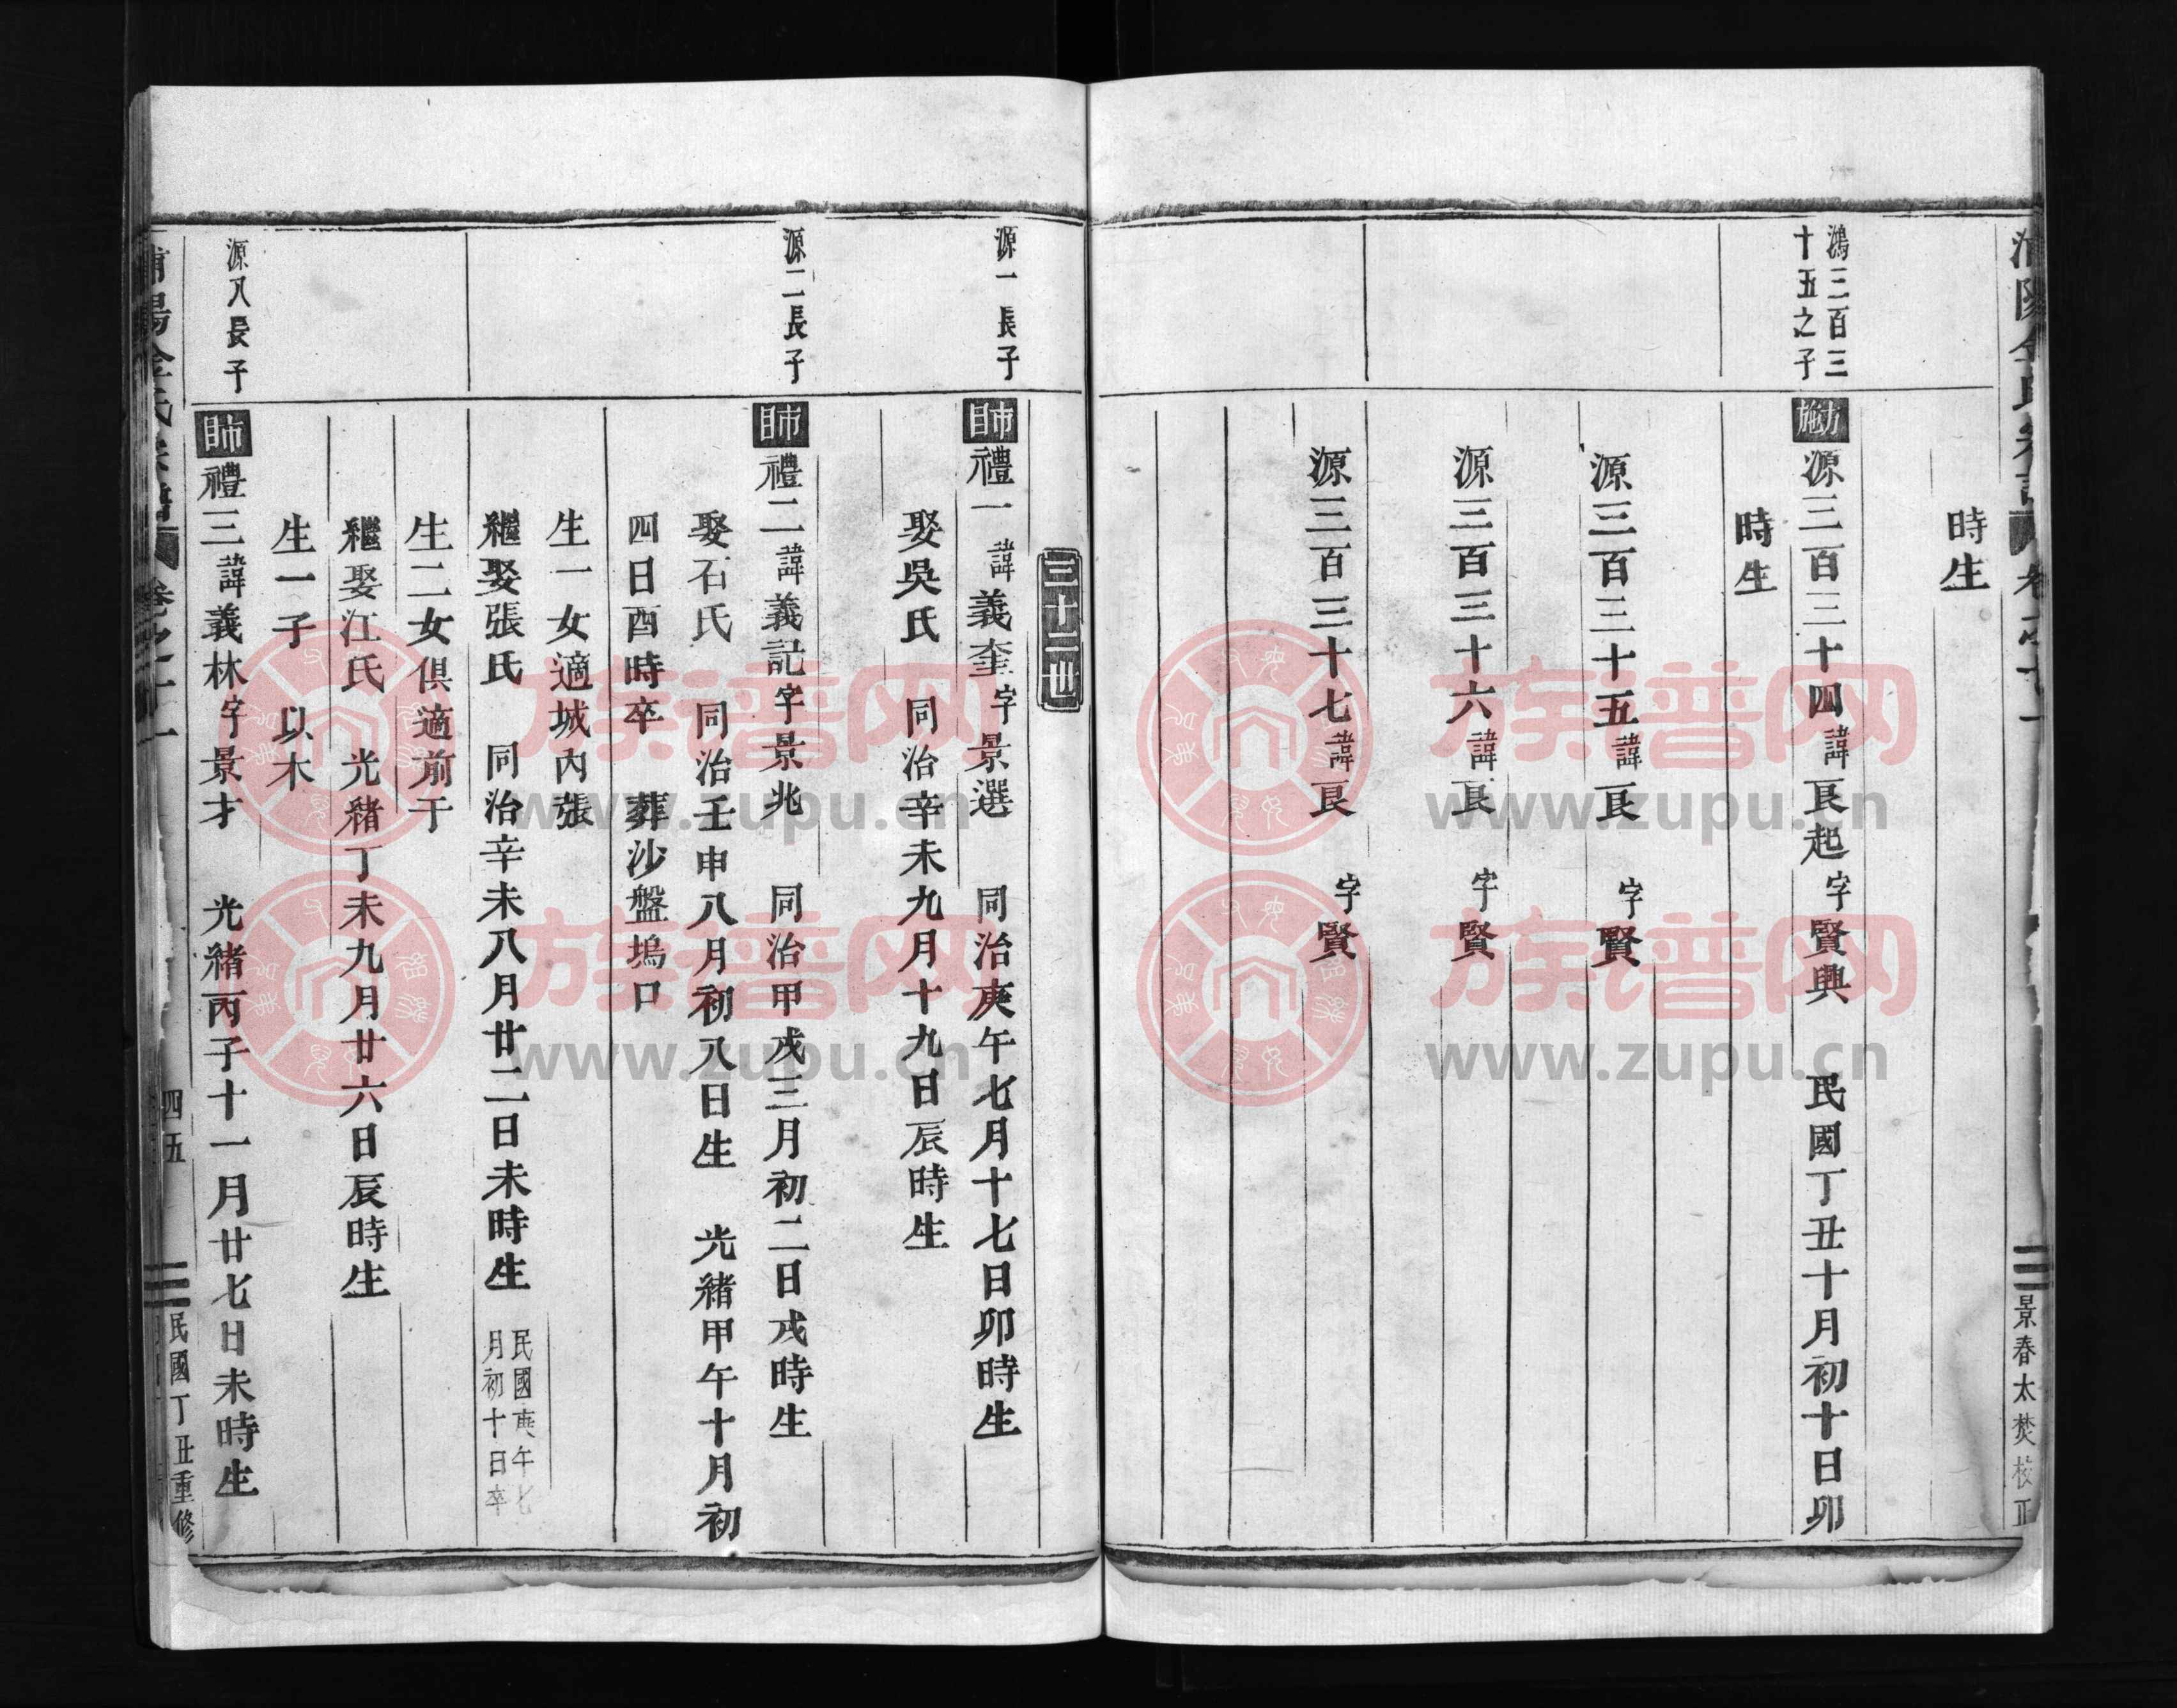 浦陽金氏
景春太焚校正
時生
鴻三百三
十五之子
源三百三十四諱良起字賢興 民國丁丑十月初十日卯
時生
源三百三十五諱良 字賢
源三百三十六諱良 字賢
源三百三十七諱良 字賢
三十二世
源一長子
師禮一諱義奎字景選 同治庚午七月十七日卯時生
娶吳氏 同治辛未九月十九日辰時生
源二長子
師禮二諱義記字景兆 同治甲戌三月初二日戌時生
娶石氏 同治壬申八月初八日生 光緒甲午十月初
四日酉時卒 葬沙盤塢口
生一女適城內張
繼娶張氏 同治辛未八月廿二日未時生 民國庚午七
月初十日卒
生二女俱適前于
繼娶江氏 光緒丁未九月廿六日辰時生
生一子 以木
源八長子
師禮三諱義林字景才 光緒丙子十一月廿七日未時生
浦陽金氏宗譜 卷之十一 四五 民國丁丑重修
族谱网
www.zupu.cn
族谱网
www.zupu.cn
族谱网
www.zupu.cn
族谱网
www.zupu.cn